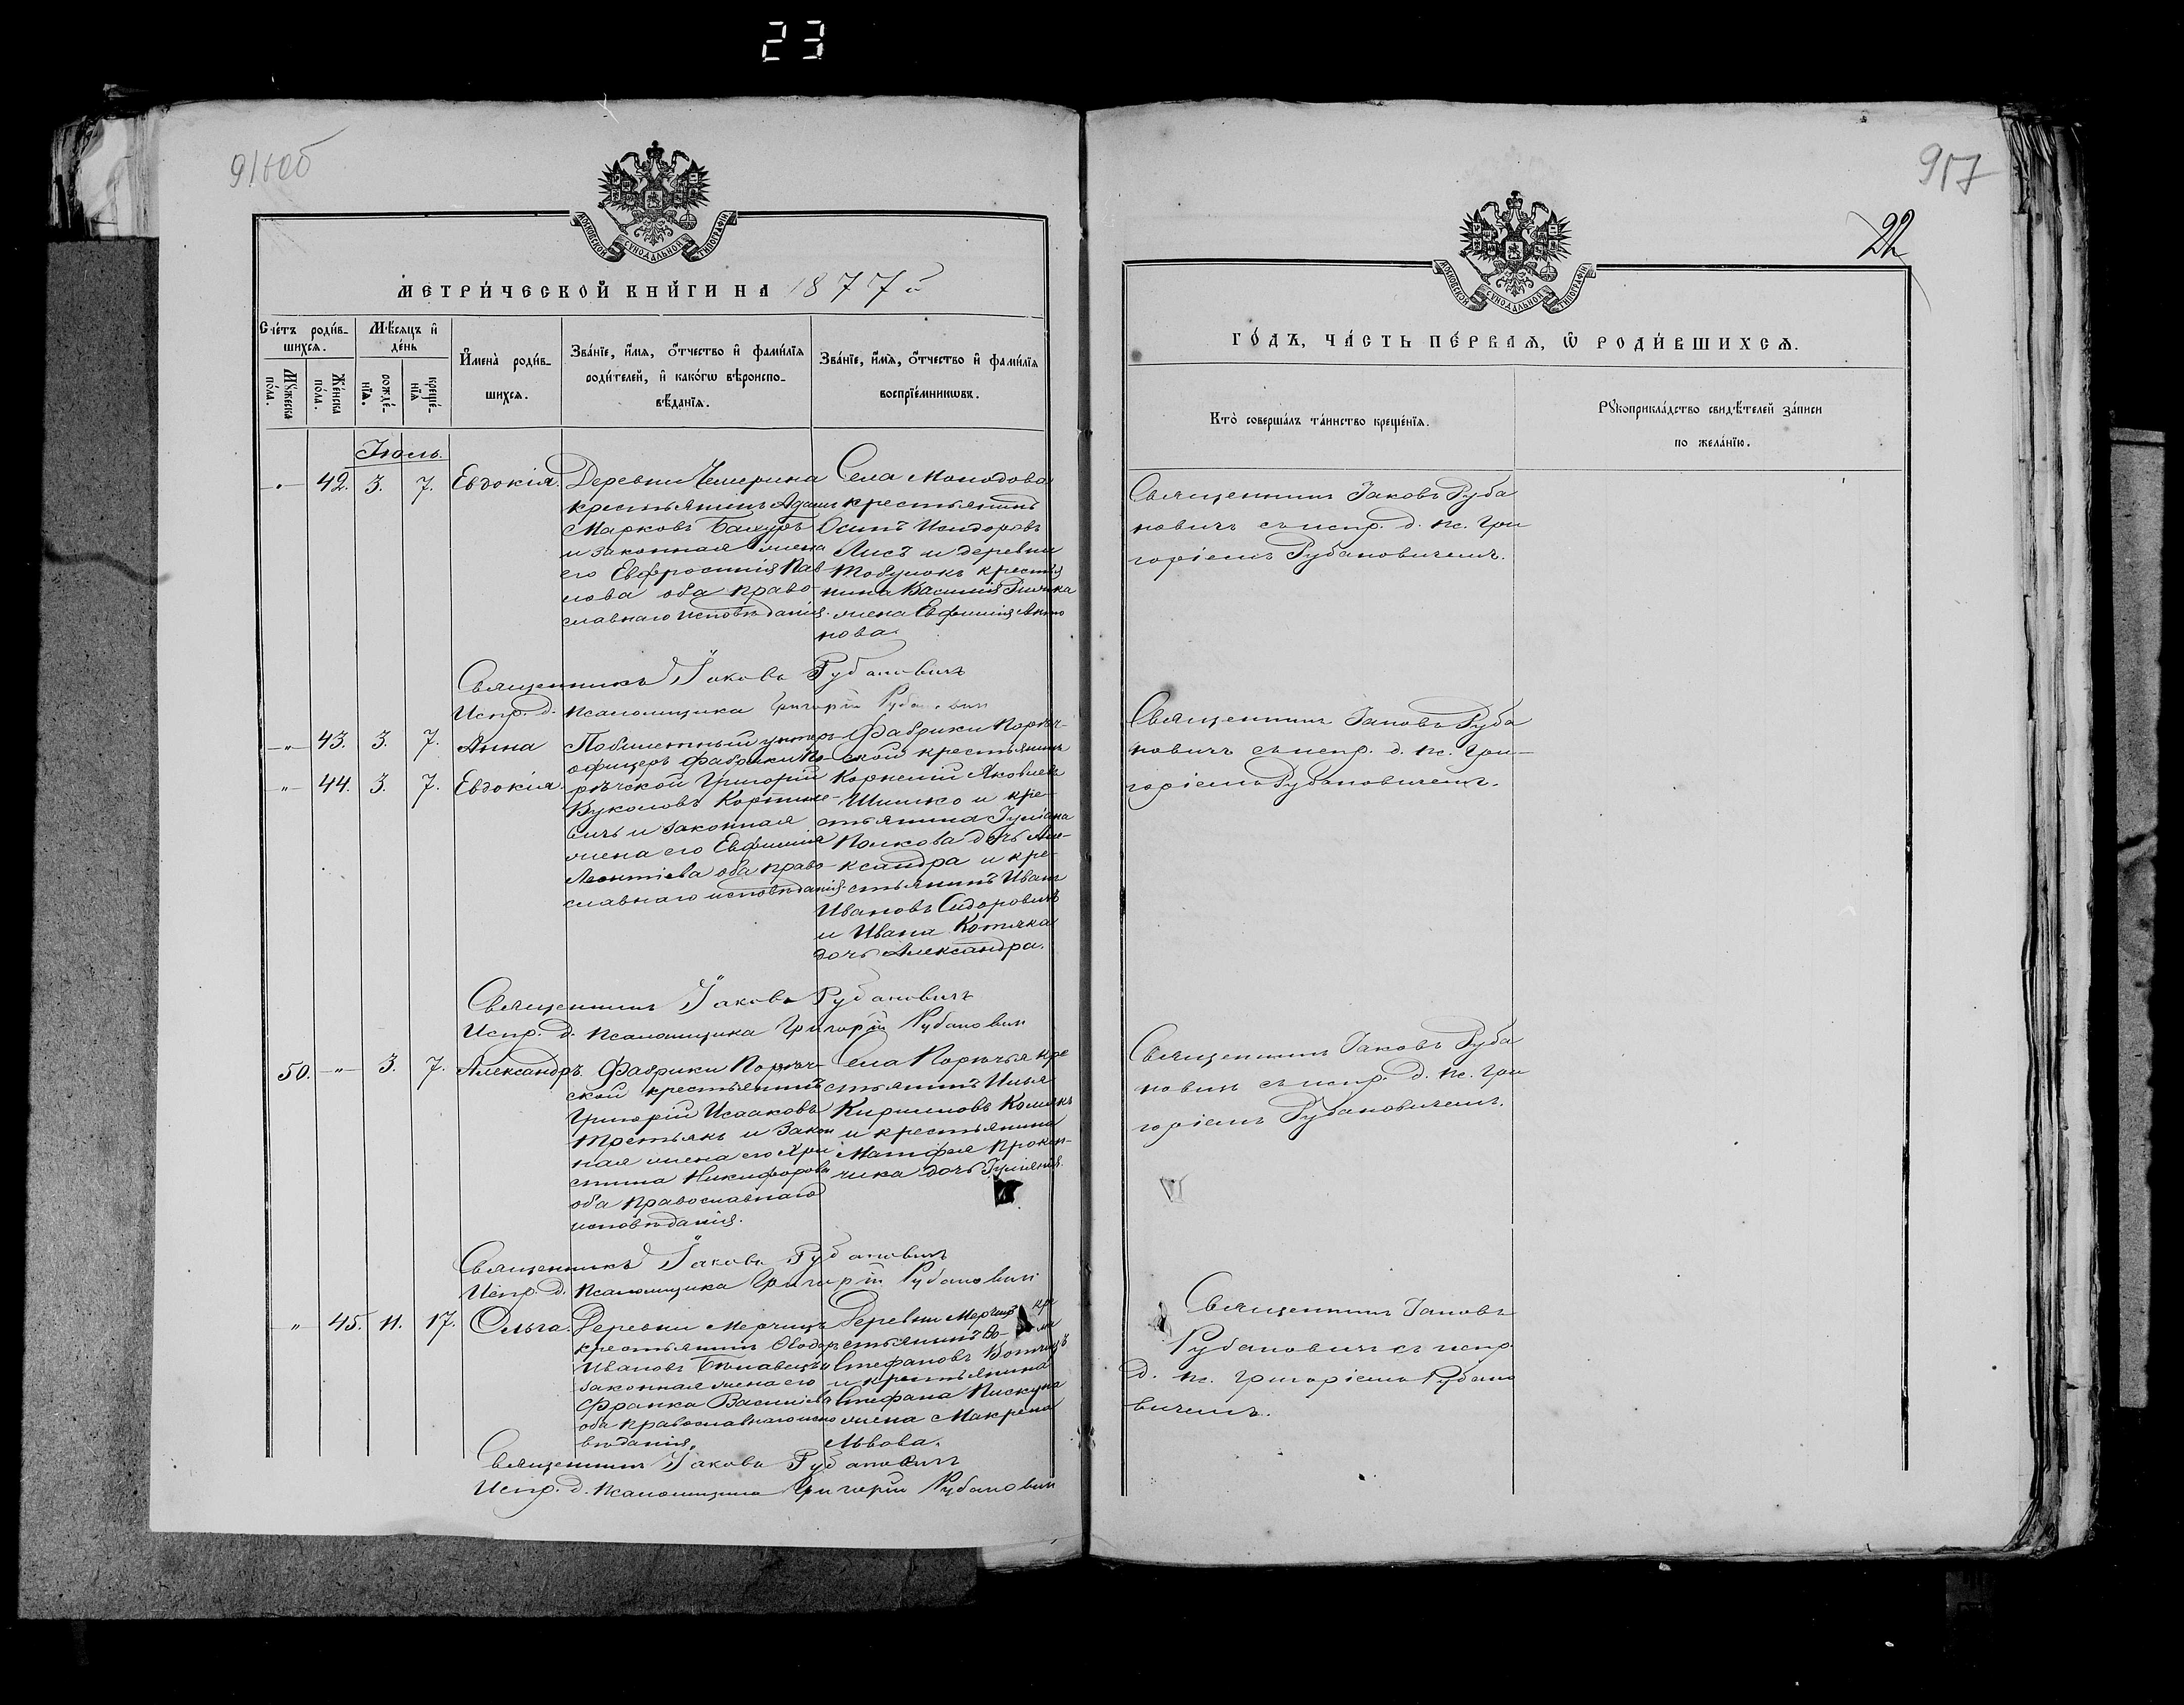 23
916об
МОСКОВСКОЙ СѴНОДАЛЬНОЙ ТИПОГРАФІИ
МЕТРИЧЕСКОЙ КНИГИ НА 1877й
Счетъ родив-
шихся.
Мѣсяцъ и
день
Имена родив-
шихся.
Званіе, имя, отчество и фамилія
родителей, и какогѡ вѣроиспо-
вѣданія.
Званіе, имя, отчество и фамилія
воспріемникѡвъ.
Мужеска
пола.
Женска
пола.
рожде-
нія.
креще-
нія
Іюль.
42. 3. 7. Евдокія.
Деревни Чемерина
крестьянинъ Адамъ
Марковъ Бахуръ
и законная жена
его Евфросинія Пав
лова оба право-
славнаго исповѣданія.
Села Молодова
крестьянинъ
Осипъ Исидоровъ
Лисъ и деревни
крестья
нина Василія
жена Евфимія Анто
нова.
Священникъ Іаковъ Рубановичъ
Испр. д. псаломщика Григорій Рубановичъ
43. 3. 7. Анна
44. 3. 7. Евдокія.
Побилетный унтеръ-
офицеръ фабрики По-
рѣчской Григорій
Вуколовъ
и законная
жена его Евфимія
Леонтіева оба право-
славнаго исповѣданія.
Фабрики Порѣч-
ской крестьянинъ
Корнелій Яковлевъ
Шишко и кре-
стьянина Іуліана
дочь Але-
ксандра и кре-
стьянинъ Иванъ
Ивановъ Сидоровичъ
и Ивана
дочь Александра.
Священникъ Іаковъ Рубановичъ
Испр. д. псаломщика Григорій Рубановичъ
50. 3. 7. Александръ.
Фабрики Порѣч-
ской крестьянинъ
Григорій Исааковъ
Третьякъ и закон
ная жена его Хри
стина Никифорова
оба православнаго
исповѣданія.
Села Порѣчья кре
стьянинъ Илья
Кирилловъ
и крестьянина
Матфея Прокоп-
чика дочь Іуліанія.
Священникъ Іаковъ Рубановичъ
Испр. д. псаломщика Григорій Рубановичъ
45. 11. 17. Ольга.
Деревни Мерчицъ
крестьянинъ Ѳеодоръ
Ивановъ и
законная жена его
Франка Василіева
оба православнаго испо
вѣданія.
Деревни Мерчицъ кре
стьянинъ
Стефановъ
и крестьянина
Стефана Пискуна
жена Макрена
Львова.
Священникъ Іаковъ Рубановичъ
Испр. д. псаломщика Григорій Рубановичъ
917
22
МОСКОВСКОЙ СѴНОДАЛЬНОЙ ТИПОГРАФІИ
ГОДЪ, ЧАСТЬ ПЕРВАЯ, Ѡ РОДИВШИХСЯ.
Кто совершалъ таинство крещенія.
Рукоприкладство свидѣтелей записи
по желанію.
Священникъ Іаковъ Руба
новичъ съ испр. д. пс. Гри
горіемъ Рубановичемъ.
Священникъ Іаковъ Руба
новичъ съ испр. д. пс. Гри-
горіемъ Рубановичемъ.
Священникъ Іаковъ Руба
новичъ съ испр. д. пс. Гри
горіемъ Рубановичемъ.
Священникъ Іаковъ
Рубановичъ съ испр.
д. пс. Григоріемъ Рубано
вичемъ.